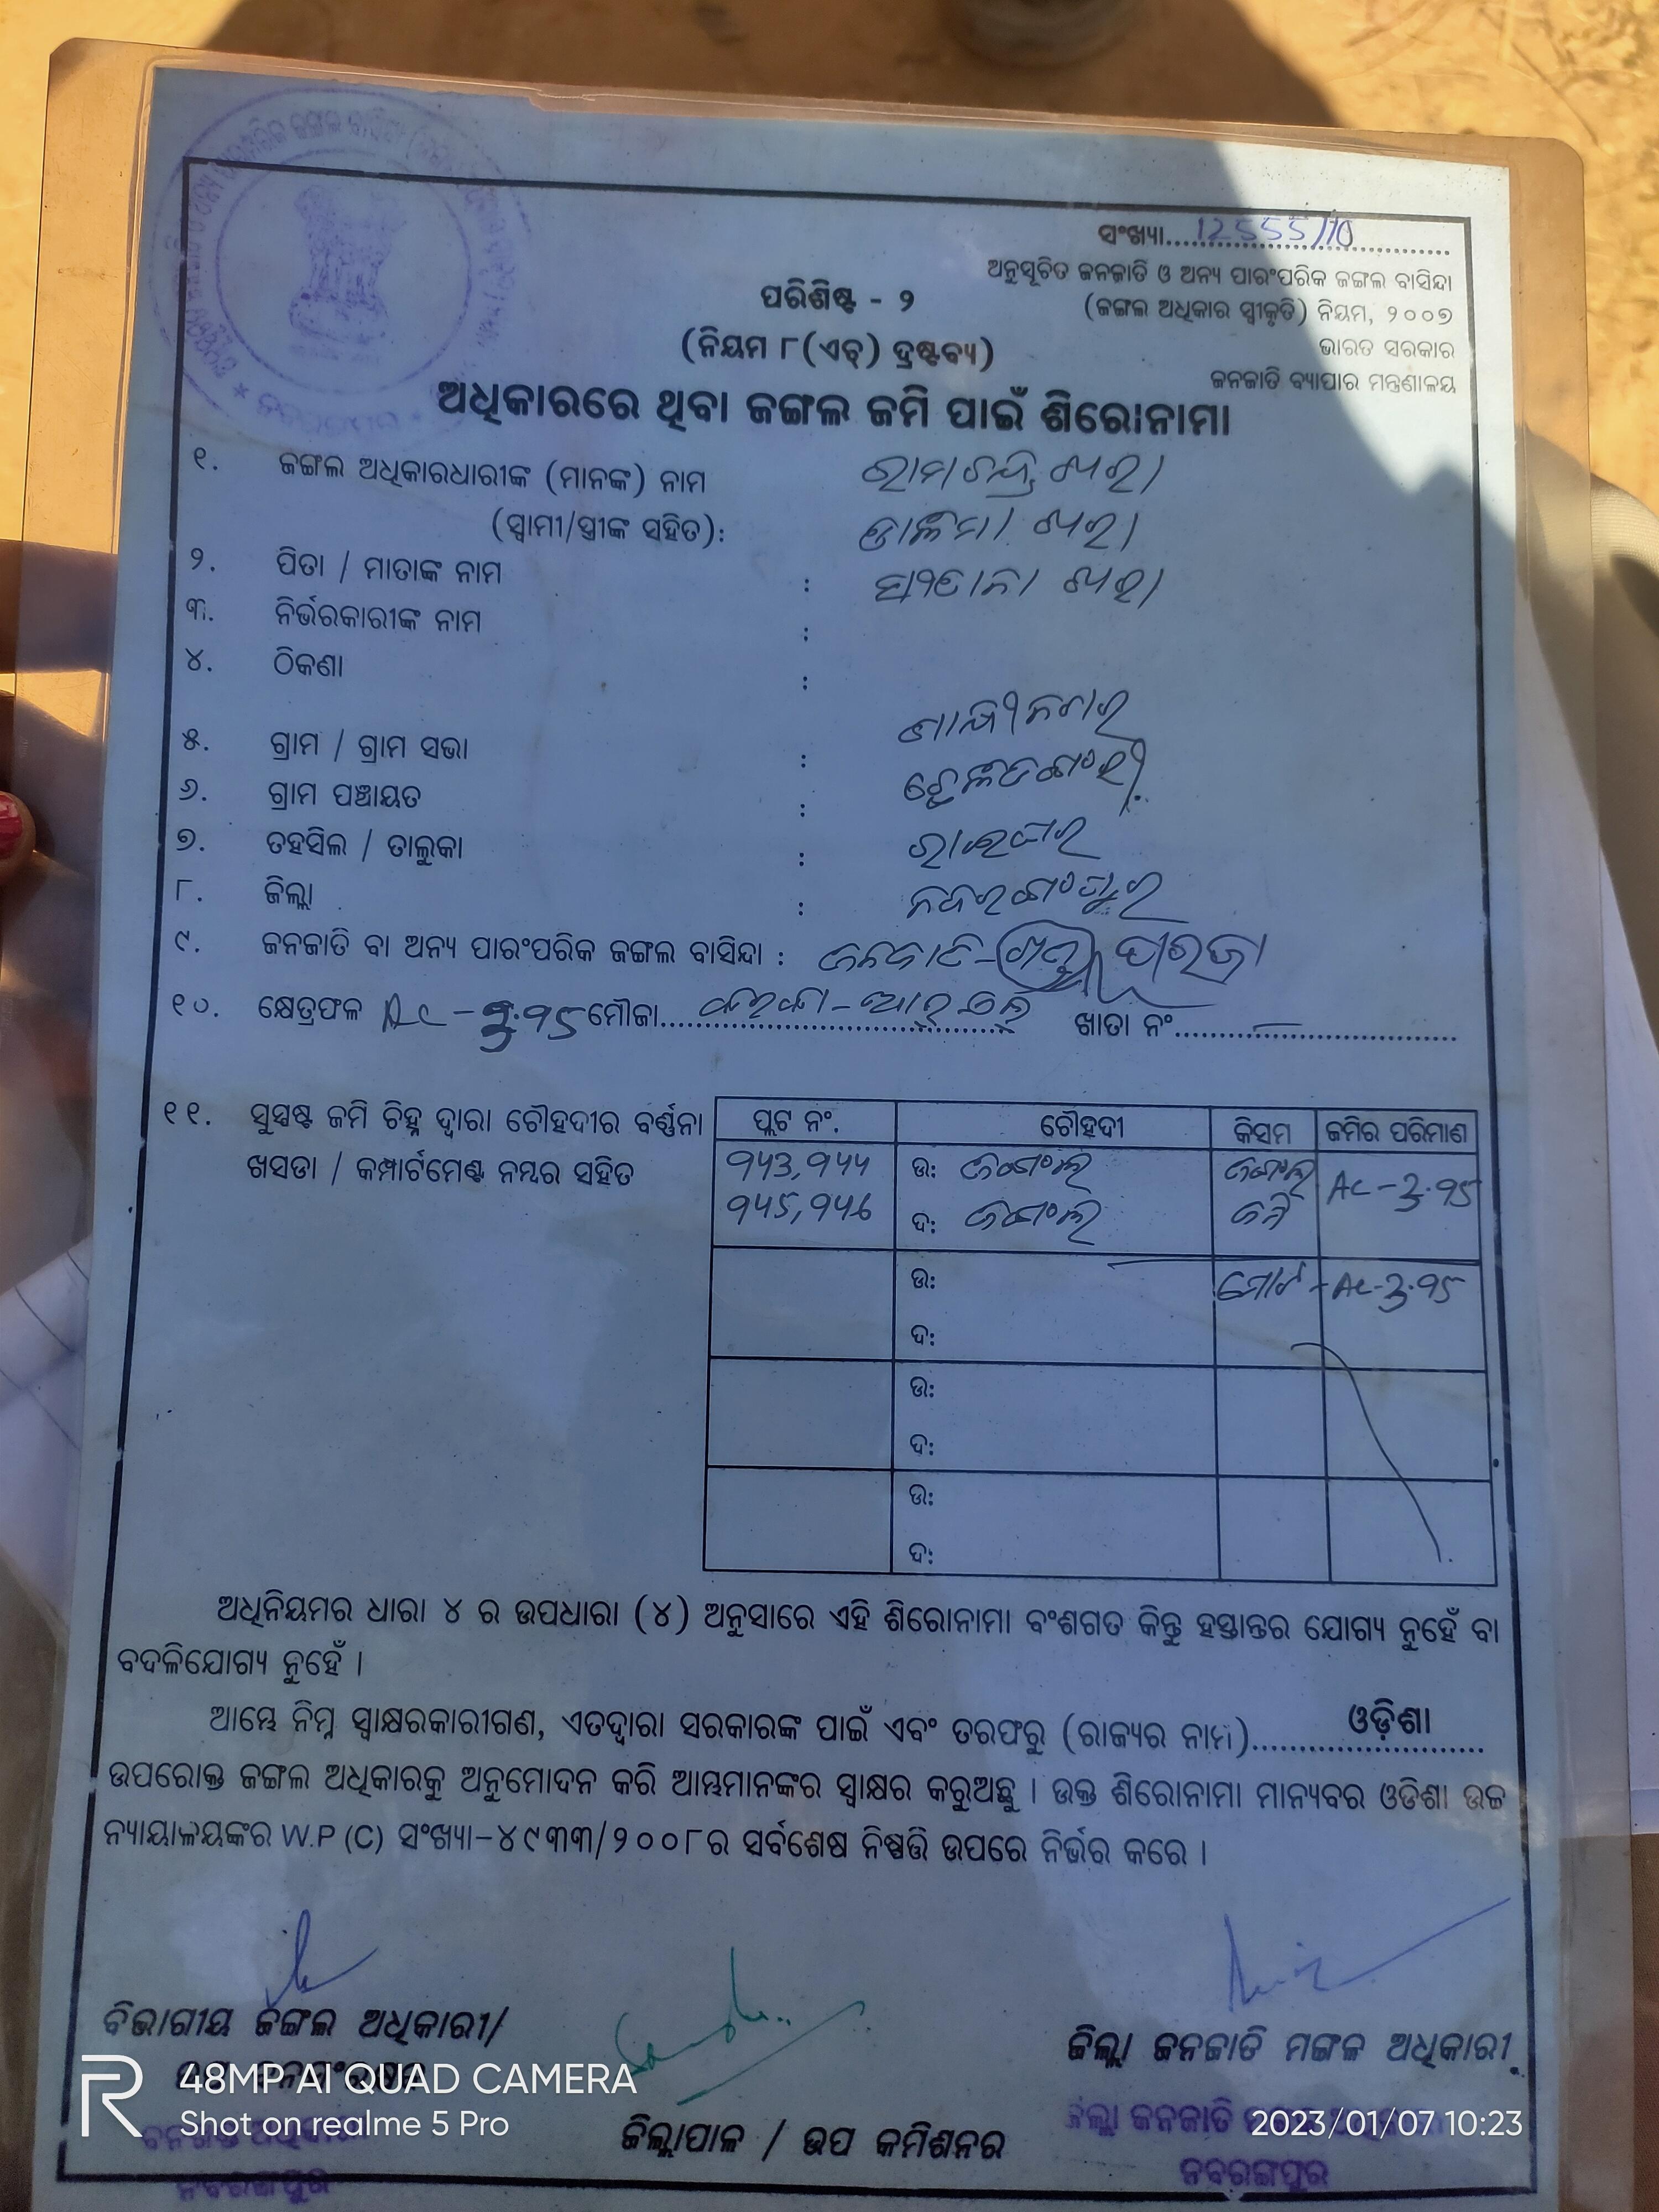 ସଂଖ୍ୟା..... 12555/10
ଅନୁସୂଚିତ ଜନଜାତି ଓ ଅନ୍ୟ ପାରଂପରିକ ଜଙ୍ଗଲ ବାସିନ୍ଦା
(ଜଙ୍ଗଲ ଅଧିକାର ସ୍ୱୀକୃତି) ନିୟମ, ୨୦୦୭
ଭାରତ ସରକାର
ଜନଜାତି ବ୍ୟାପାର ମନ୍ତ୍ରଣାଳୟ
ପରିଶିଷ୍ଟ - ୨
(ନିୟମ ୮(ଏଚ୍) ଦ୍ରଷ୍ଟବ୍ୟ)
ଅଧିକାରରେ ଥିବା ଜଙ୍ଗଲ ଜମି ପାଇଁ ଶିରୋନାମା
୧. ଜଙ୍ଗଲ ଅଧିକାରଧାରୀଙ୍କ (ମାନଙ୍କ) ନାମ
(ସ୍ୱାମୀ/ସ୍ତ୍ରୀଙ୍କ ସହିତ):
୨. ପିତା / ମାତାଙ୍କ ନାମ :
୩. ନିର୍ଭରକାରୀଙ୍କ ନାମ :
୪. ଠିକଣା :
ଗାନ୍ଧୀନଗର
୫. ଗ୍ରାମ / ଗ୍ରାମ ସଭା :
୬. ଗ୍ରାମ ପଞ୍ଚାୟତ :
୭. ତହସିଲ / ତାଲୁକା : ରାଇଘର
୮. ଜିଲ୍ଲା : ନବରଙ୍ଗପୁର
୯. ଜନଜାତି ବା ଅନ୍ୟ ପାରଂପରିକ ଜଙ୍ଗଲ ବାସିନ୍ଦା : ଜନଜାତି - ପରଜା
୧୦. କ୍ଷେତ୍ରଫଳ Ac - 3.୨୫ ମୌଜା..... ଖାତା ନଂ.....
୧୧. ସୁସ୍ପଷ୍ଟ ଜମି ଚିହ୍ନ ଦ୍ୱାରା ଚୌହଦୀର ବର୍ଣ୍ଣନା
ଖସଡା / କମ୍ପାର୍ଟମେଣ୍ଟ ନମ୍ବର ସହିତ
ପ୍ଲଟ ନଂ. ଚୌହଦୀ କିସମ ଜମିର ପରିମାଣ
ଉ: ଜଙ୍ଗଲ ଜଙ୍ଗଲ Ac - 3.୨୫
ଦ: ଜଙ୍ଗଲ ଜମି
ଉ: ମୋଟ - Ac - 3.୨୫
ଦ:
ଉ:
ଦ:
ଉ:
ଦ:
ଅଧିନିୟମର ଧାରା ୪ ର ଉପଧାରା (୪) ଅନୁସାରେ ଏହି ଶିରୋନାମା ବଂଶଗତ କିନ୍ତୁ ହସ୍ତାନ୍ତର ଯୋଗ୍ୟ ନୁହେଁ ବା
ବଦଳିଯୋଗ୍ୟ ନୁହେଁ ।
ଆମ୍ଭେ ନିମ୍ନ ସ୍ୱାକ୍ଷରକାରୀଗଣ, ଏତଦ୍ୱାରା ସରକାରଙ୍କ ପାଇଁ ଏବଂ ତରଫରୁ (ରାଜ୍ୟର ନାମ)..... ଓଡ଼ିଶା
ଉପରୋକ୍ତ ଜଙ୍ଗଲ ଅଧିକାରକୁ ଅନୁମୋଦନ କରି ଆମ୍ଭମାନଙ୍କର ସ୍ୱାକ୍ଷର କରୁଅଛୁ । ଉକ୍ତ ଶିରୋନାମା ମାନ୍ୟବର ଓଡିଶା ଉଚ୍ଚ
ନ୍ୟାୟାଳୟଙ୍କର W.P (C) ସଂଖ୍ୟା–୪୯୩୩/୨୦୦୮ର ସର୍ବଶେଷ ନିଷ୍ପତ୍ତି ଉପରେ ନିର୍ଭର କରେ ।
ବିଭାଗୀୟ ଜଙ୍ଗଲ ଅଧିକାରୀ/
ଜିଲ୍ଲା ଜନଜାତି ମଙ୍ଗଳ ଅଧିକାରୀ
ଜିଲ୍ଲାପାଳ / ଉପ କମିଶନର
ଜିଲ୍ଲା ଜନଜାତି
ନବରଙ୍ଗପୁର
ନବରଙ୍ଗପୁର
48MP AI QUAD CAMERA
Shot on realme 5 Pro
2023/01/07 10:23